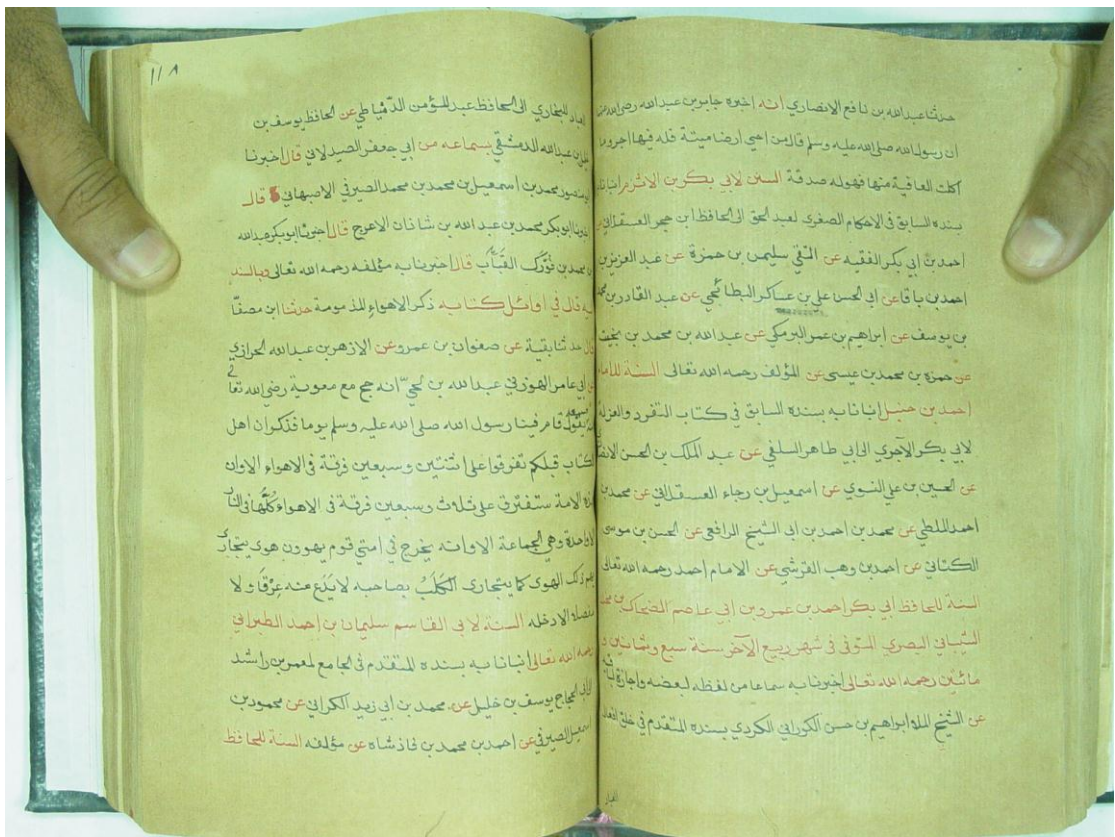 حدثنا عبد الله بن نافع الانصاري أنه اخبره جابر بن عبد الله رضي الله
ان رسول الله صلى الله عليه وسلم قال من احيى ارضا ميتة فله فيها اجر وما
اكلت العافية منها فهو له صدقة السنن لابي بكر بن الاثرم
بسنده السابق في الاحكام الصغرى لعبد الحق الى الحافظ ابن حجر العسقلاني
احمد بن أبي بكر الفقيه عن التقي سليمن بن حمزة عن عبد العزيز بن
احمد بن باقا عن ابي الحسن علي بن عساكر البطائحي عن عبد القادر بن محمد
بن يوسف عن ابراهيم بن عمر البرمكي عن عبد الله بن محمد بن بخيت
عن حمزة بن محمد بن عيسى عن المؤلف رحمه الله تعالى السنة للامام
احمد بن حنبل انبأنا به بسنده السابق في كتاب التفرد والعزلة
لابي بكر الآجري الى ابي طاهر السلفي عن عبد الملك بن الحسن
عن الحسين بن علي النسوي عن اسمعيل بن رجاء العسقلاني عن محمد بن
احمد الملطي عن محمد بن احمد بن ابي الشيخ الرافعي عن الحسن بن موسى
الكتاني عن احمد بن وهب القرشي عن الامام احمد رحمه الله تعالى
السنة للحافظ ابي بكر احمد بن عمرو بن ابي عاصم الضحاك بن مخلد
الشيباني البصري المتوفى في شهر ربيع الآخر سنة سبع وثمانين و
مائتين رحمه الله تعالى اخبرنا به سماعا من لفظه لبعضه واجازة
عن الشيخ الملا ابراهيم بن حسن الكوراني الكردي بسنده المتقدم في خلق افعال
العباد
١١٨
العباد للبخاري الى الحافظ عبد المؤمن الدمياطي عن الحافظ يوسف بن
خليل بن عبد الله الدمشقي بسماعه من ابي جعفر الصيدلاني قال اخبرنا
ابو منصور محمد بن اسمعيل بن محمد بن محمد الصيرفي الاصبهاني قال
اخبرنا ابو بكر محمد بن عبد الله بن شاذان الاعرج قال اخبرنا ابو بكر عبد الله
بن محمد بن فورك القباب قال اخبرنا به مؤلفه رحمه الله تعالى وبالسند
اليه قال في اوائل كتابه ذكر الاهواء المذمومة حدثنا ابن مصفا
قال حدثنا بقية عن صفوان بن عمرو عن الازهر بن عبد الله الحرازي
عن ابي عامر الهوزني عبد الله بن لحي انه حج مع معوية رضي الله تعالى
فسمعه يقول قام فينا رسول الله صلى الله عليه وسلم يوما فذكر ان اهل
الكتاب قبلكم تفرقوا على اثنتين وسبعين فرقة في الاهواء الا وان
هذه الامة ستفترق على ثلاث وسبعين فرقة في الاهواء كلها في النار
الا واحدة وهي الجماعة الا وانه يخرج في امتي قوم يهوون هوى يتجارى
بهم ذلك الهوى كما يتجارى الكلب بصاحبه لا يدع منه عرقا ولا
مفصلا الا دخله السنة لابي القاسم سليمان بن احمد الطبراني
رحمه الله تعالى انبأنا به بسنده المتقدم في الجامع لمعمر بن راشد
الى ابي الحجاج يوسف بن خليل عن محمد بن ابي زيد الكراني عن محمود بن
اسمعيل الصيرفي عن احمد بن محمد بن فاذشاه عن مؤلفه السنة للحافظ